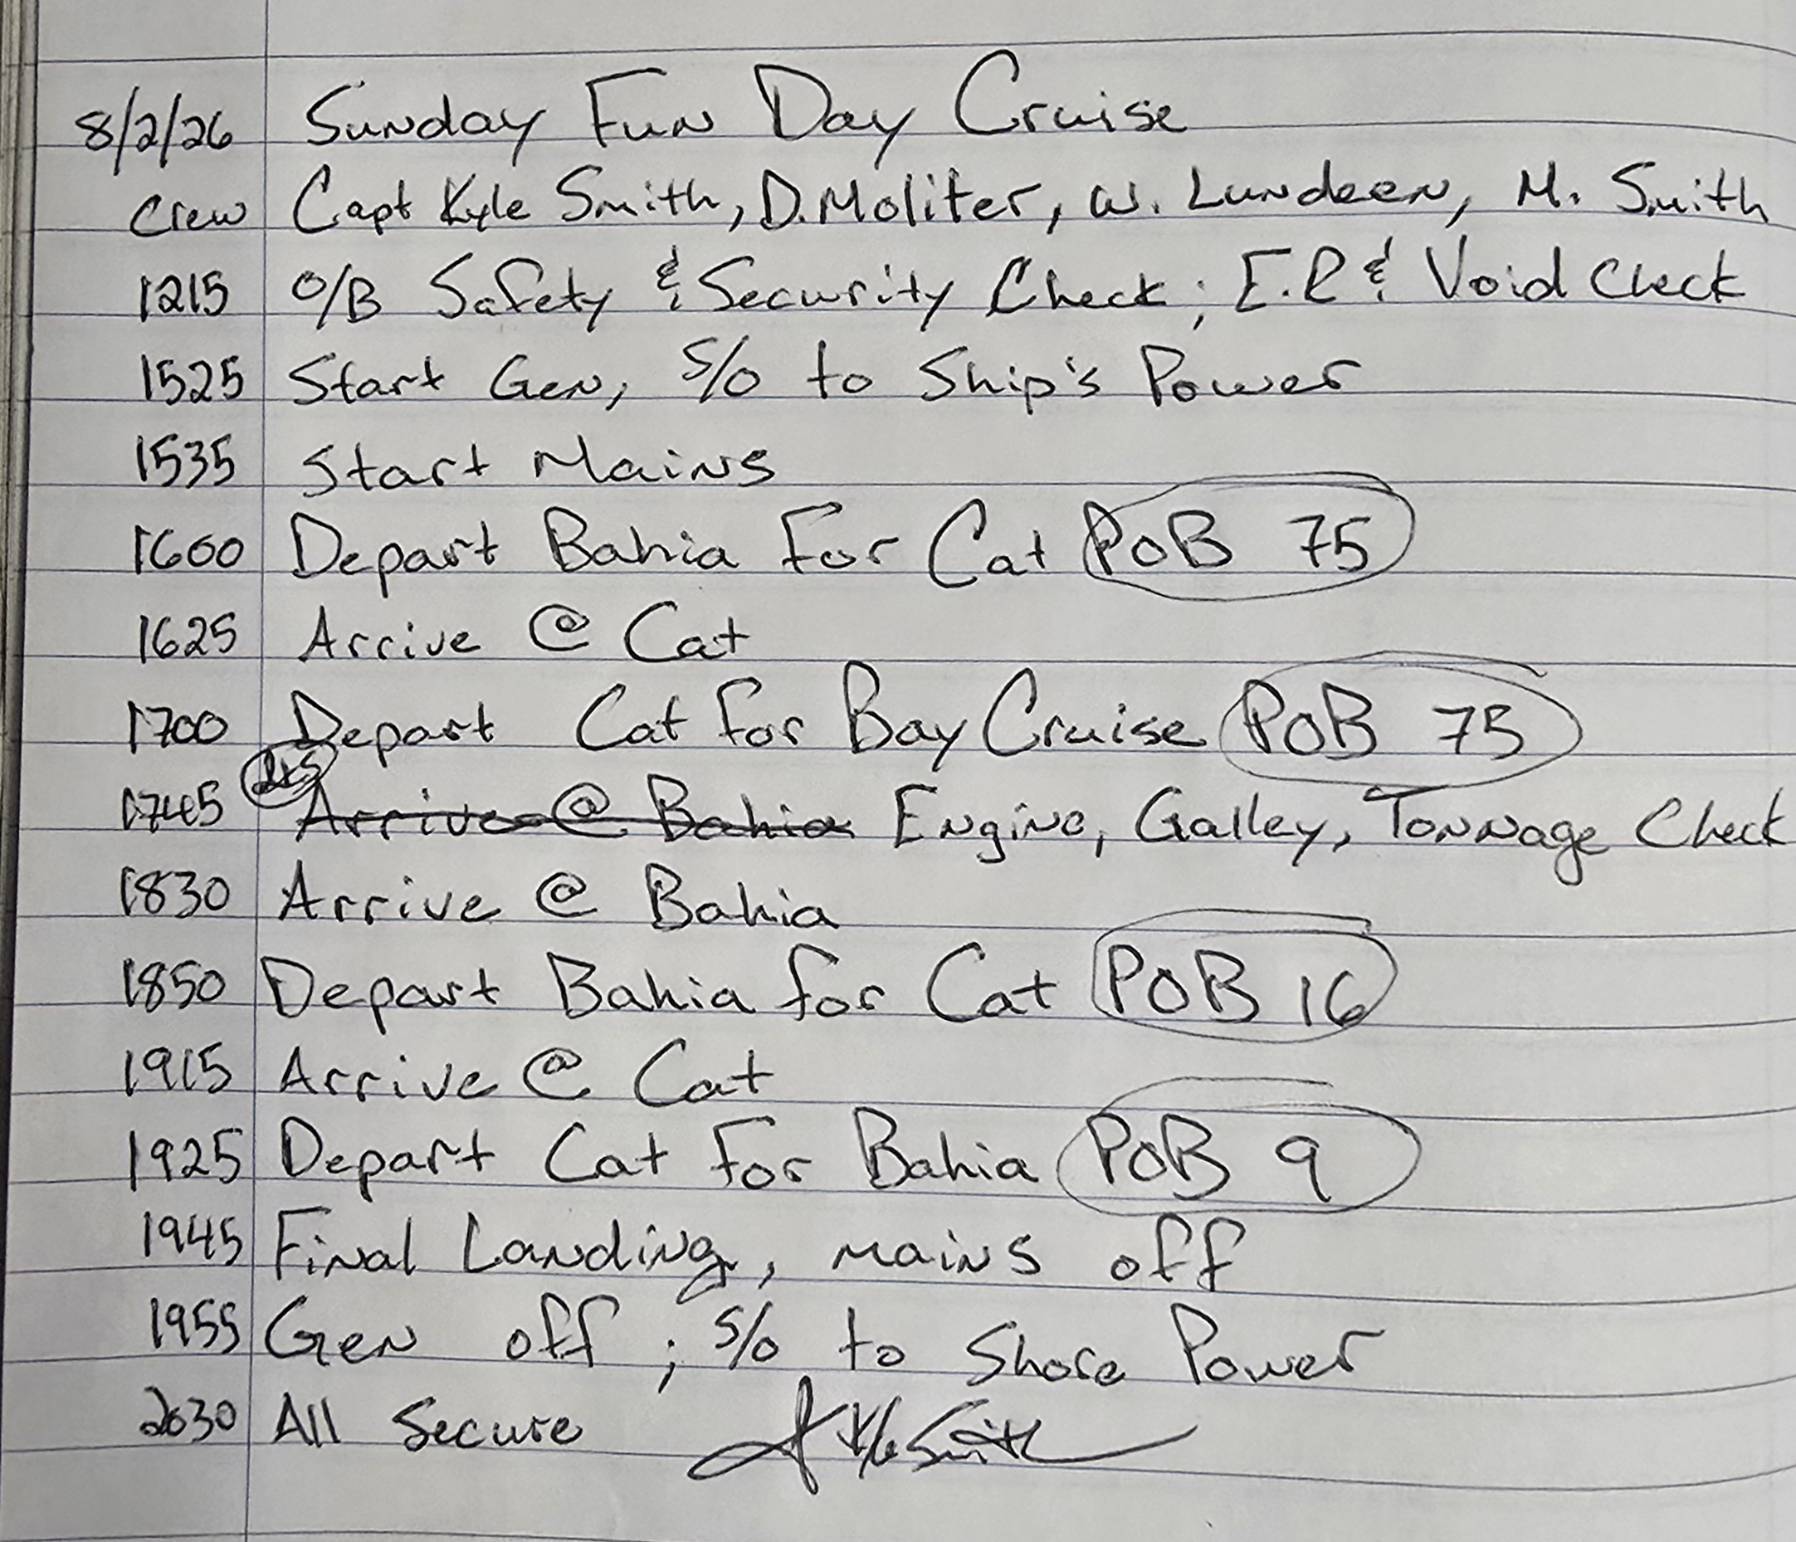 8/2/26 Sunday Fun Day Cruise
Crew Capt Kyle Smith, D. Moliter, W. Lundeen, M. Smith
1215 O/B Safety & Security Check; E.R & Void Check
1525 Start Gen, S/O to Ship's Power
1535 Start Mains
1600 Depart Bahia For Cat POB 75
1625 Arrive @ Cat
1700 Depart Cat For Bay Cruise POB 75
1745 Arrive @ Bahia Engine, Galley, Tonnage Check
1830 Arrive @ Bahia
1850 Depart Bahia for Cat POB 16
1915 Arrive @ Cat
1925 Depart Cat For Bahia POB 9
1945 Final Landing, mains off
1955 Gen off; S/O to Shore Power
2030 All Secure Kyle Smith